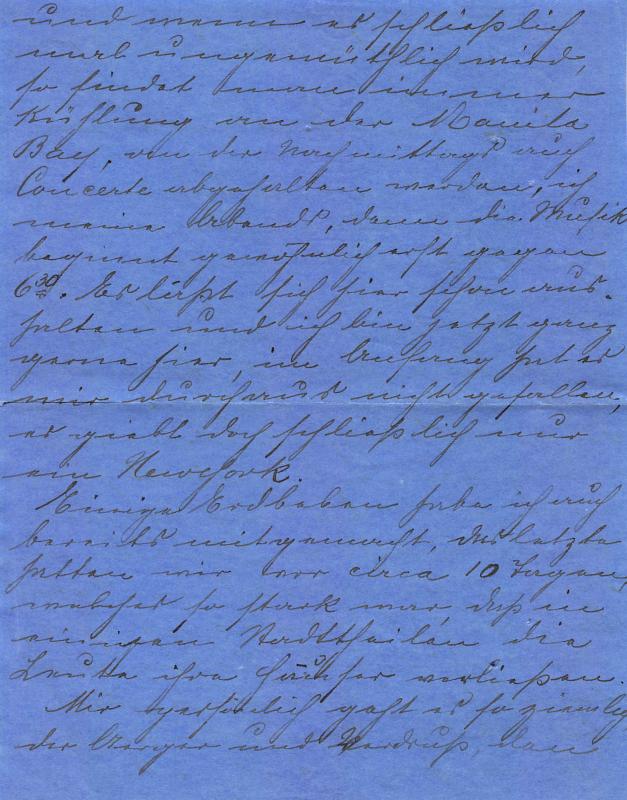 und wenn es schließlich
mal ungemüthlich wird,
so findet man immer
Kühlung an der Manila
Bay, wo der Nachmittags auch
Concerte abgehalten werden, ich
meine Abends, denn die Musik
beginnt gewöhnlich erst gegen
6 30. Es läßt sich hier schon aus-
halten und ich bin jetzt ganz
gerne hier, im Anfang hat es
mir durchaus nicht gefallen,
es giebt doch schließlich nur
ein New York.
Einige Erdbeben habe ich auch
bereits mitgemacht, das letzte
hatten wir vor circa 10 Tagen,
welches so stark war, daß in
einigen Stadttheilen die
Leute ihre Häuser verließen.
Mir persönlich geht es so ziemlich
der Aerger und Verdruß, den